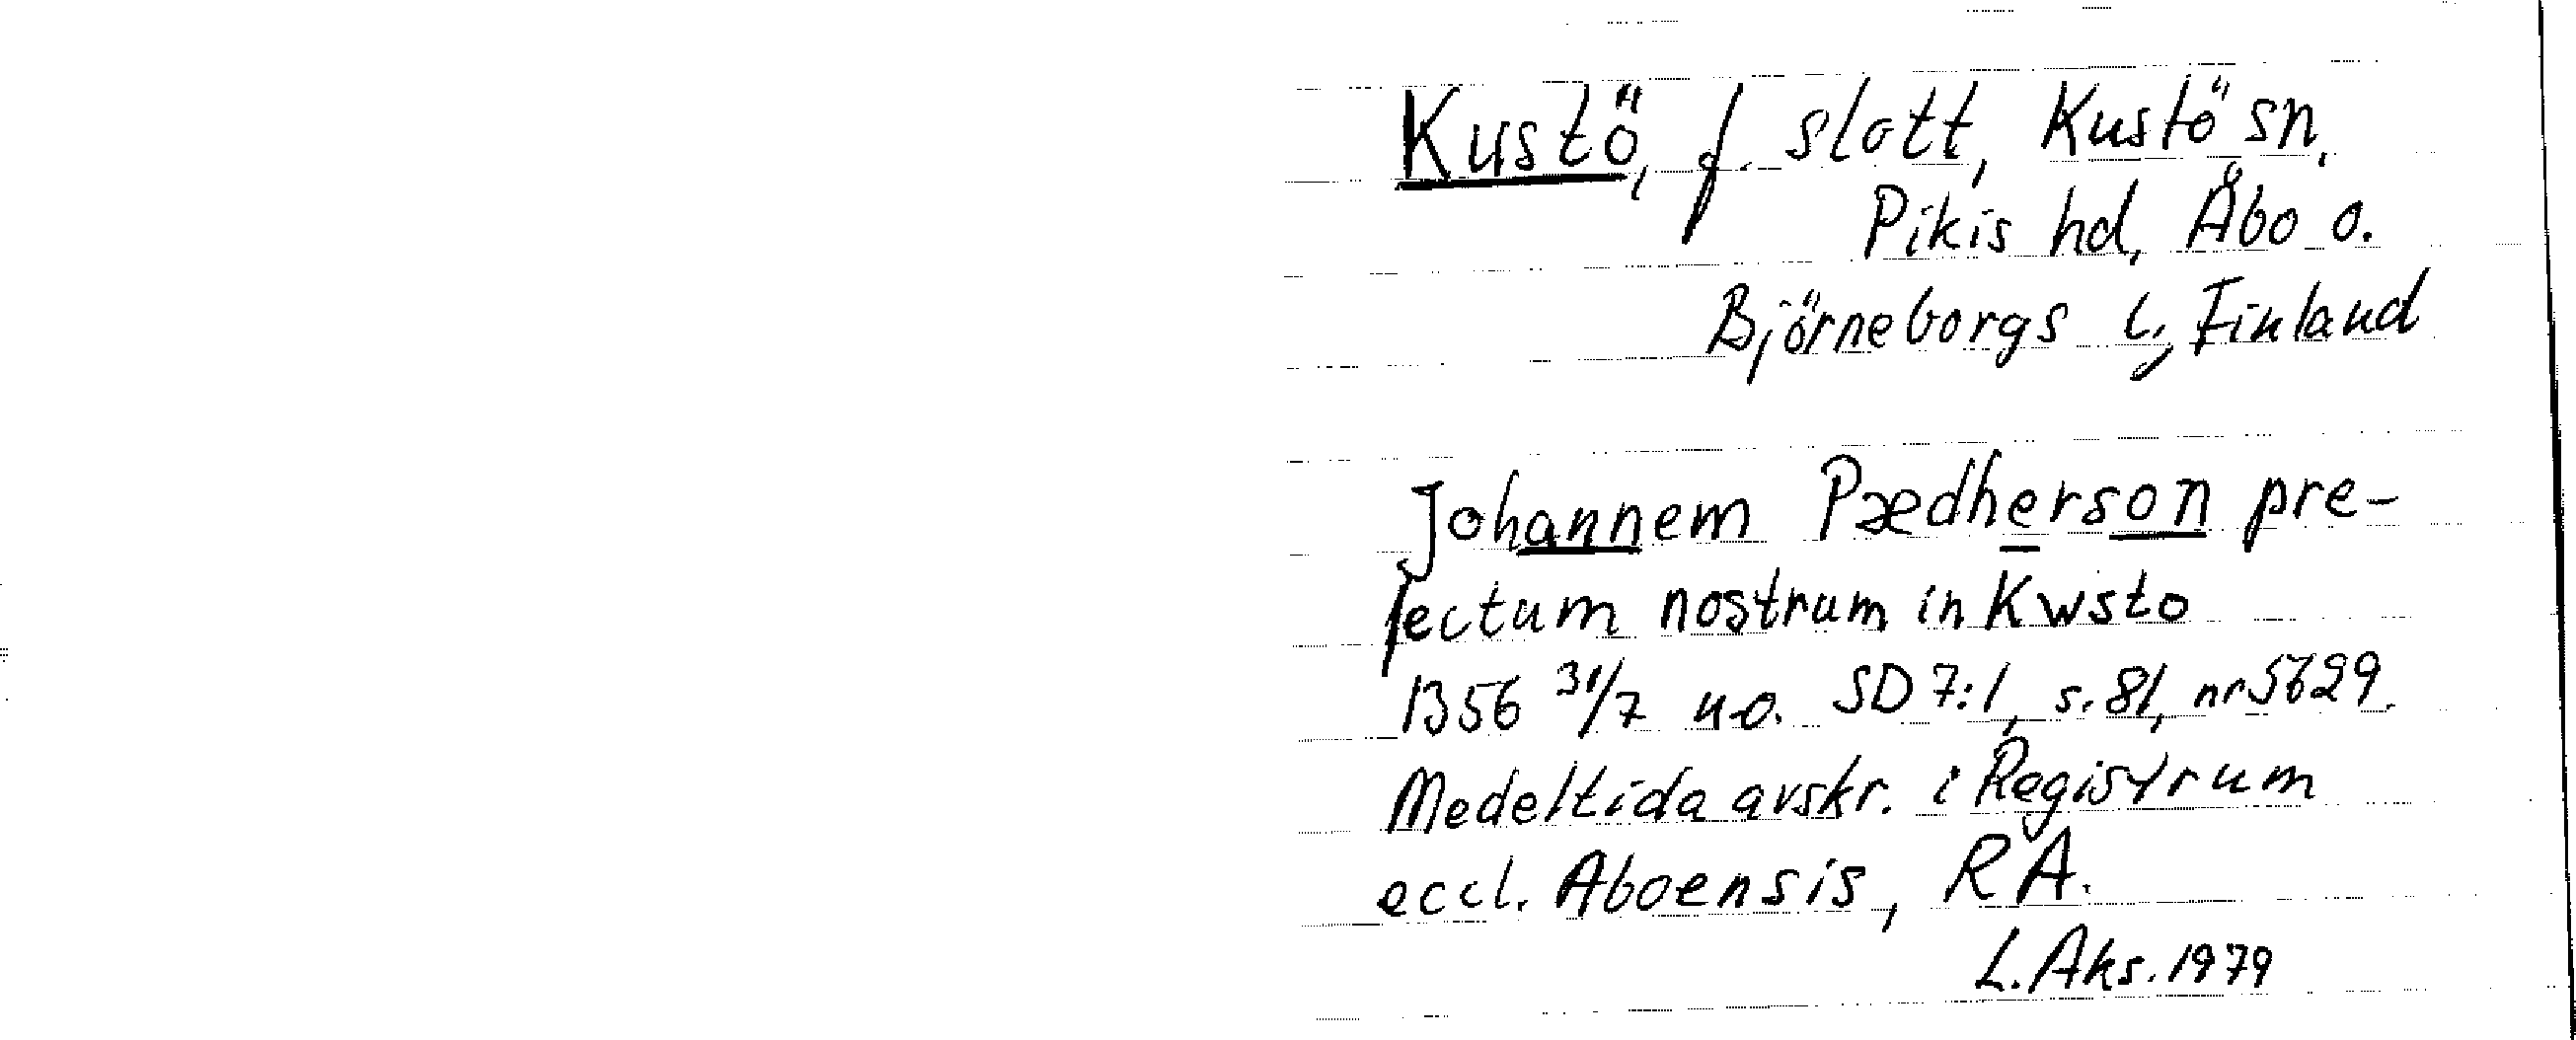 Kustö, f. slott, Kustö sn,
Pikis hd, Åbo o.
Björneborgs l, Finland
Johannem Pædherson pre-
fectum nostrum in Kwsto
1356 31/7 u.o. SD 7:1, s. 81, nr 5629.
Medeltida avskr. i Registrum
eccl. Aboensis, RA.
L. Aks. 1979